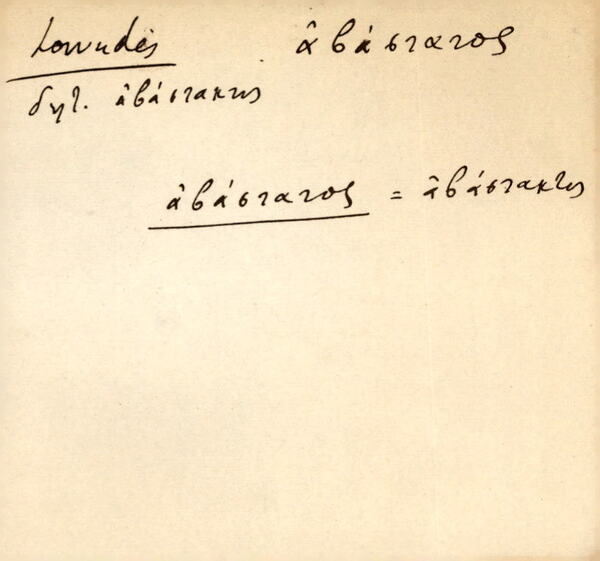 Lowndes ἀβάστατος
δηλ. ἀβάστακτος
ἀβάστατος = ἀβάστακτος